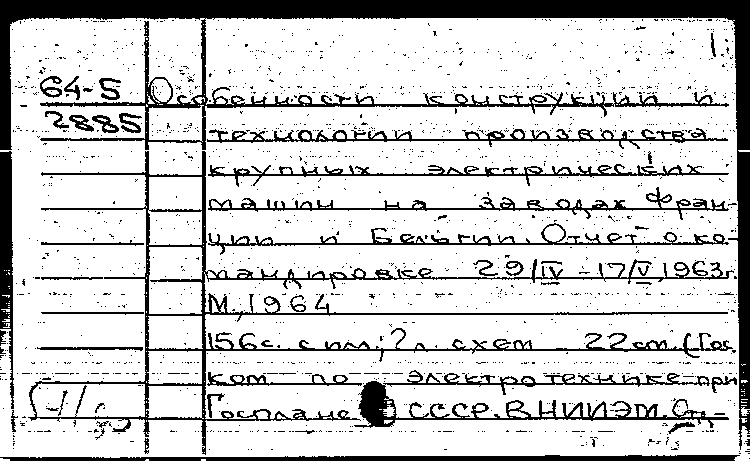 64-5 Особенности конструкции и
2885 технологии производства
крупных электрических
машин на заводах Фран-
ции и Бельгии. Отчет о ко-
мандировке 29/IV - 17/V 1963г.
М., 1964
156с. с илл; ? л. схем 22см. (Гос.
ком. по электротехнике при
Госплане СССР. ВНИИЭМ. Отд-